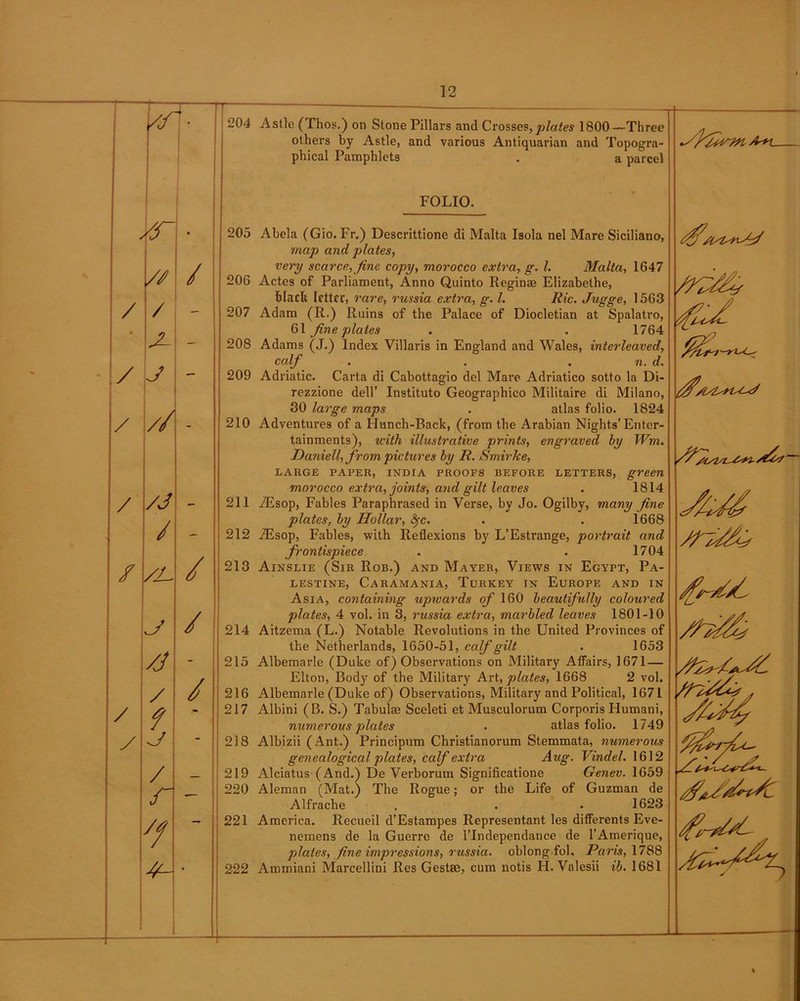 12
204 Astle (Thos.) on Stone Pillars and Crosses, plates 1800—Three
others by Astle, and various Antiquarian and Topogra-
phical Pamphlets . a parcel
FOLIO.
205 Abela (Gio. Fr.) Descrittione di Malta Isola nel Mare Siciliano,
map and plates,
very scarce, fine copy, morocco extra, g. l. Malta, 1647
206 Actes of Parliament, Anno Quinto Reginæ Elizabethe,
black letter, rare, russia extra, g. l. Ric. Jugge, 1563
207 Adam (R.) Ruins of the Palace of Diocletian at Spalatro,
61 fine plates . . 1764
208 Adams (J.) Index Villaris in England and Wales, interleaved,
calf . . . n. d.
209 Adriatic. Carta di Cabottagio del Mare Adriatico sotto la Di-
rezzione dell' Instituto Geographico Militaire di Milano,
30 large maps . atlas folio. 1824
210 Adventures of a Hunch-Back, (from the Arabian Nights' Enter-
tainments), with illustrative prints, engraved by Wm.
Daniell, from pictures by R. Smirke,
LARGE PAPER, INDIA PROOFS BEFORE LETTERS, green
morocco extra, joints, and gilt leaves . 1814
211 Æsop, Fables Paraphrased in Verse, by Jo. Ogilby, many fine
plates, by Hollar, &c. . . 1668
212 Æsop, Fables, with Reflexions by L'Estrange, portrait and
frontispiece . . 1704
213 AINSLIE (SIR ROB.) AND MAYER, VIEWS IN EGYPT, PA-
LESTINE, CARAMANIA, TURKEY IN EUROPE AND IN
ASIA, containing upwards of 160 beautifully coloured
plates, 4 vol. in 3, russia extra, marbled leaves 1801-10
214 Aitzema (L.) Notable Revolutions in the United Provinces of
the Netherlands, 1650-51, calf gilt . 1653
215 Albemarle (Duke of) Observations on Military Affairs, 1671—
Elton, Body of the Military Art, plates, 1668 2 vol.
216 Albemarle (Duke of) Observations, Military and Political, 1671
217 Albini (B. S.) Tabulæ Sceleti et Musculorum Corporis Humani,
numerous plates . atlas folio. 1749
218 Albizii (Ant.) Principum Christianorum Stemmata, numerous
genealogical plates, calf extra Aug. Vindel. 1612
219 Alciatus (And.) De Verborum Significatione Genev. 1659
220 Aleman (Mat.) The Rogue; or the Life of Guzman de
Alfrache . . . 1623
221 America. Recueil d'Estampes Representant les differents Eve-
nemens de la Guerre de l'Independance de l'Amerique,
plates, fine impressions, russia. oblong fol. Paris, 1788
222 Ammiani Marcellini Res Gestæ, cum notis H. Valesii ib. 1681